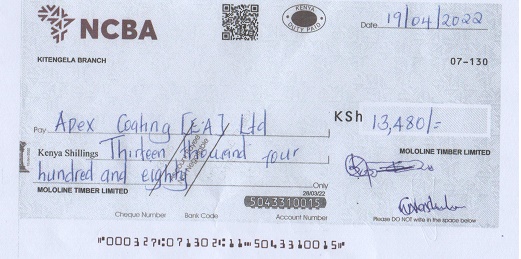 NCBA
KENYA
DUTY PAID
Date 19/04/2022
KITENGELA BRANCH
07-130
Pay Apex Coating [E.A] Ltd
KSh 13,480/=
Kenya Shillings Thirteen thousand four
hundred and eighty
Only
MOLOLINE TIMBER LIMITED
MOLOLINE TIMBER LIMITED
28/03/22
5043310015
Cheque Number Bank Code Account Number
Please DO NOT write in the space below